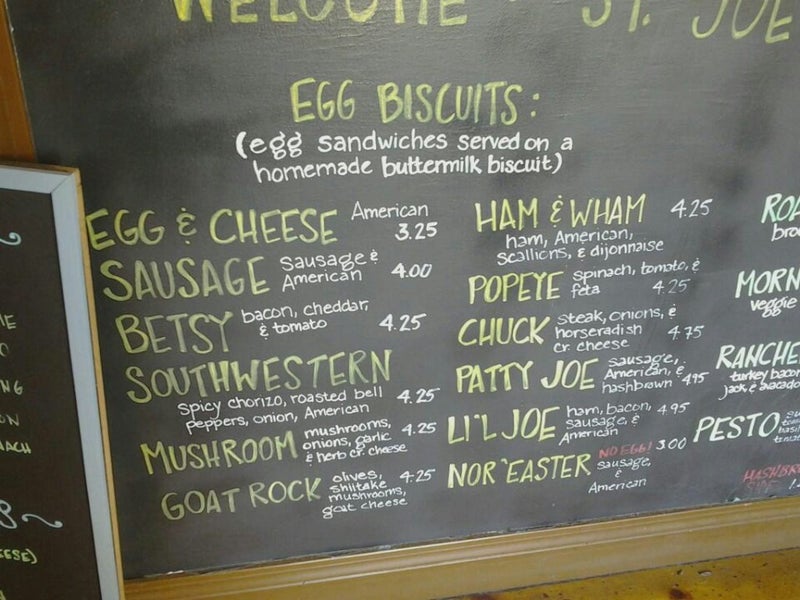 WELCOME ST. JOE
EGG BISCUITS:
(egg sandwiches served on a
homemade buttermilk biscuit)
EGG & CHEESE American 3.25
SAUSAGE Sausage &
American 4.00
BETSY bacon, cheddar,
& tomato 4.25
SOUTHWESTERN
spicy chorizo, roasted bell
peppers, onion, American 4.25
MUSHROOM mushrooms,
onions, garlic 4.25
& herb cr. cheese
GOAT ROCK olives, 4.25
shiitake
mushrooms,
goat cheese
HAM & WHAM 4.25
ham, American,
scallions, & dijonnaise
POPEYE spinach, tomato, &
feta 4.25
CHUCK steak, onions, &
horseradish 4.75
cr. cheese
PATTY JOE sausage,
American, &
hashbrown 4.95
LI'L JOE ham, bacon, 4.95
sausage, &
American
NOR'EASTER NO EGG! 3.00
sausage,
&
American
ROA
bro
MORN
veggie
RANCHE
turkey bacon
jack, & avocado
PESTO
HASHBR
SIDE
ESE)